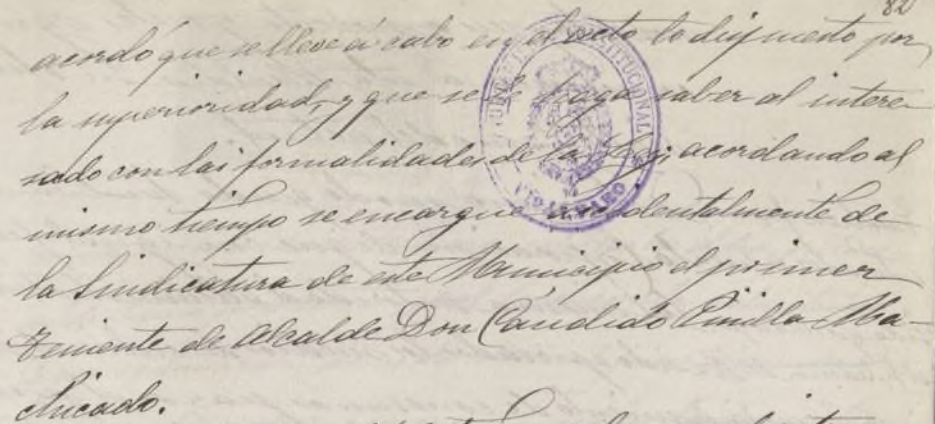 82
acordó que se lleve á cabo en el acto lo dispuesto por
la superioridad, y que se le haga saber al intere-
sado con las formalidades de la Ley; acordando al
mismo tiempo se encargue accidentalmente de
la Sindicatura de este Municipio el primer
Teniente de Alcalde Don Candido Pinilla Ma-
chicado.
CONSTITUCIONAL